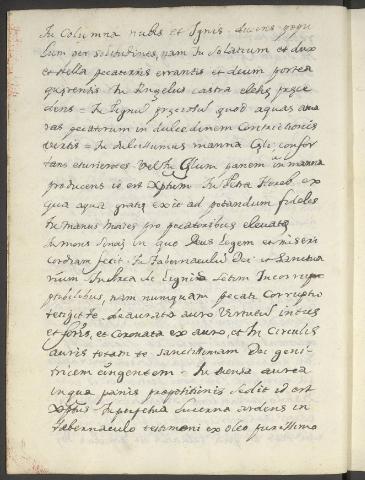 Tu Columna nubis et Ignis ducens popu
lum per solitudines, nam Tu Solatium et dux
et stella peccatoris errantis et deum
Tu Angelus castra præce
dens = Tu Lignum quod aquas ama
ras peccatorum in dulcedinem Contritionis
vertis = Tu dulcissimum manna Cœli, confor
tans esurientes vel Tu Cœlum panem in manna
producens id est Xptum Tu Petra Horeb, ex
qua aqua gratiæ exiit ad potandum fideles
Tu manus Moisis pro peccatoribus elevata
Tu mons Sinai in quo Deus Legem et miseri
cordiam fecit Tu Tabernaculum Dei et Sanctua
rium Tu Arca de Lignis Setim Incorrup
tibilibus, nam numquam peccati Corruptio
tetigit te, deaurata auro Virtutum intus
et foris, et Coronata ex auro, et In Circulis
aureis totam te Sanctissimam Dei geni
tricem cingentem = Tu mensa aurea
in qua panis propositionis sedit id est
Xptus Tu perpetua Lucerna ardens in
Tabernaculo testimonii ex oleo purissimo